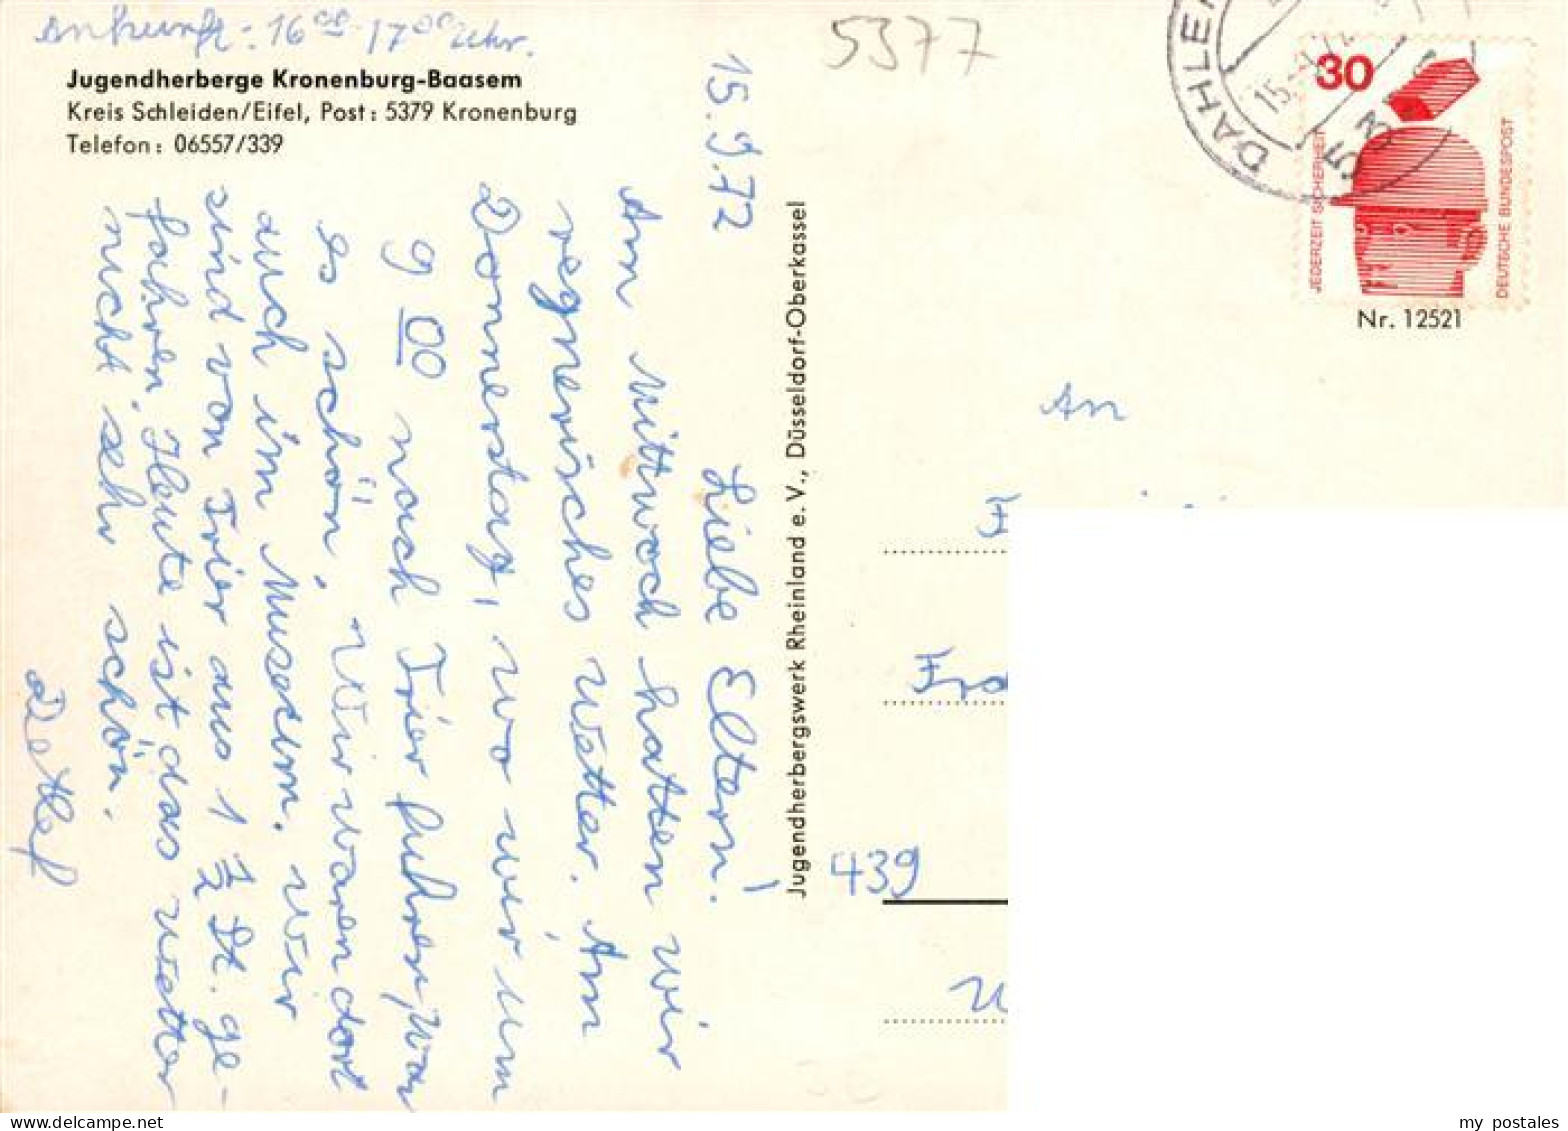 Ankunft: 16⁰⁰-17⁰⁰ Uhr.
Jugendherberge Kronenburg-Baasem
Kreis Schleiden/Eifel, Post: 5379 Kronenburg
Telefon: 06557/339
15.9.72
Liebe Eltern!
Am Mittwoch hatten wir
regnerisches Wetter. Am
Donnerstag, wo wir um
9 00 nach Trier fuhren, war
es schön. Wir waren dort
auch im Museum. Wir
sind von Trier aus 1 1/2 St. ge-
fahren. Heute ist das Wetter
nicht sehr schön.
Detlef
Jugendherbergswerk Rheinland e. V., Düsseldorf-Oberkassel
5377
DAHLEM
15.
53
30
JEDERZEIT SICHERHEIT
DEUTSCHE BUNDESPOST
Nr. 12521
An
F
Fra
439
my postales